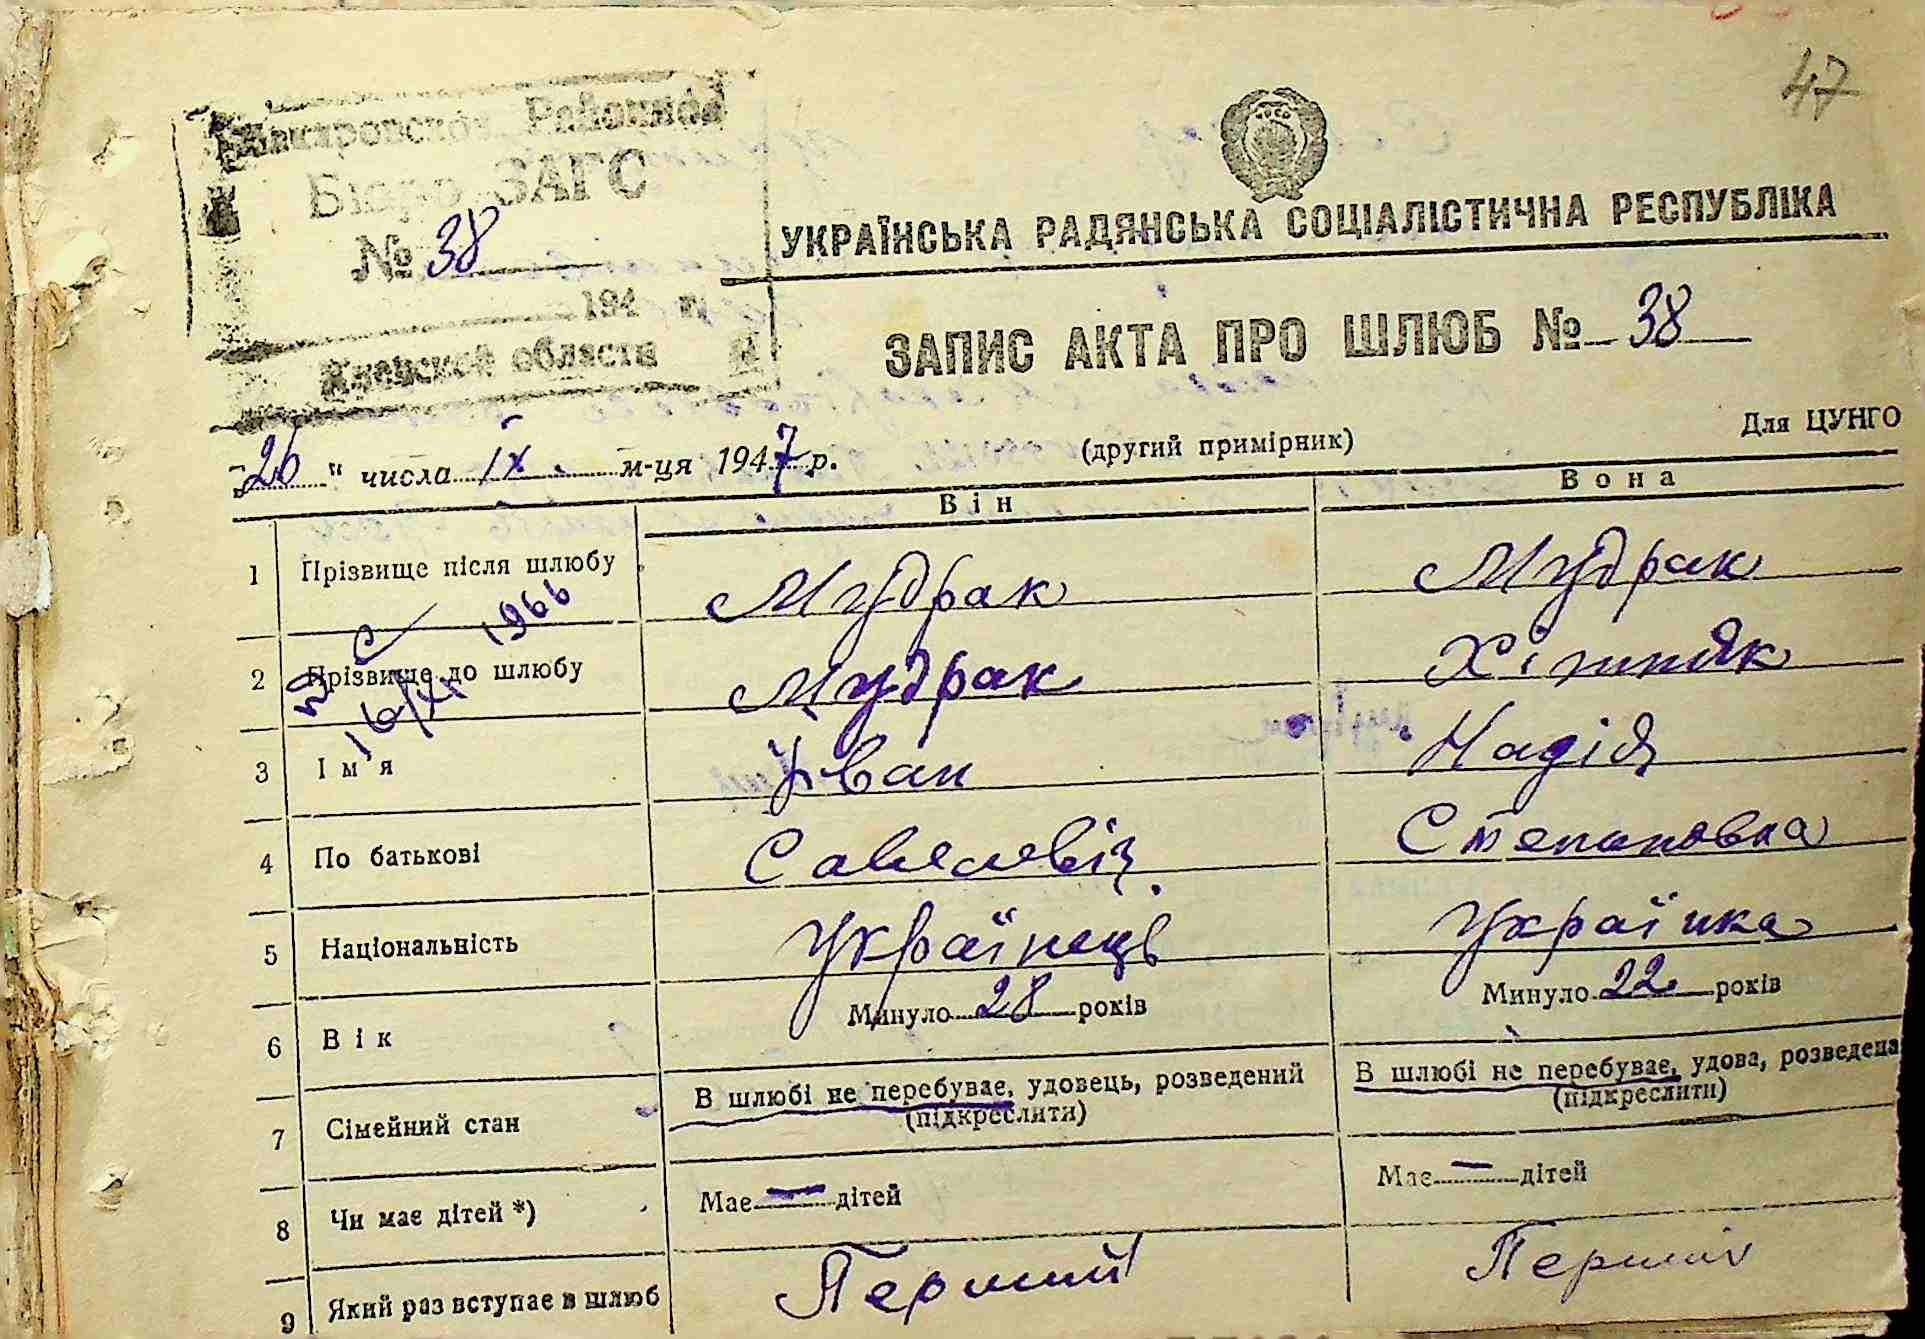 47
Макаровское Районное
Бюро ЗАГС
№ 38
194 г.
Киевской области
УКРАЇНСЬКА РАДЯНСЬКА СОЦІАЛІСТИЧНА РЕСПУБЛІКА
ЗАПИС АКТА ПРО ШЛЮБ № 38
„26" числа IX. м-ця 1947 р. (другий примірник) Для ЦУНГО
Він Вона
1 Прізвище після шлюбу Мудрак Мудрак
1966
2 Прізвище до шлюбу Мудрак
16/XI
3 Ім'я Іван Надія
4 По батькові Савелевіч. Степановна
5 Національність Українець Українка
6 Вік Минуло 28 років Минуло 22 років
7 Сімейний стан В шлюбі не перебуває, удовець, розведений (підкреслити) В шлюбі не перебуває, удова, розведена (підкреслити)
8 Чи має дітей *) Має — дітей Має — дітей
9 Який раз вступає в шлюб Перший Перший